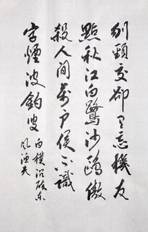 刎頸交卻有忘機友
點秋江白鷺沙鷗傲
殺人間萬戶侯不識
字煙波釣叟
白樸沉醉東
風漁夫